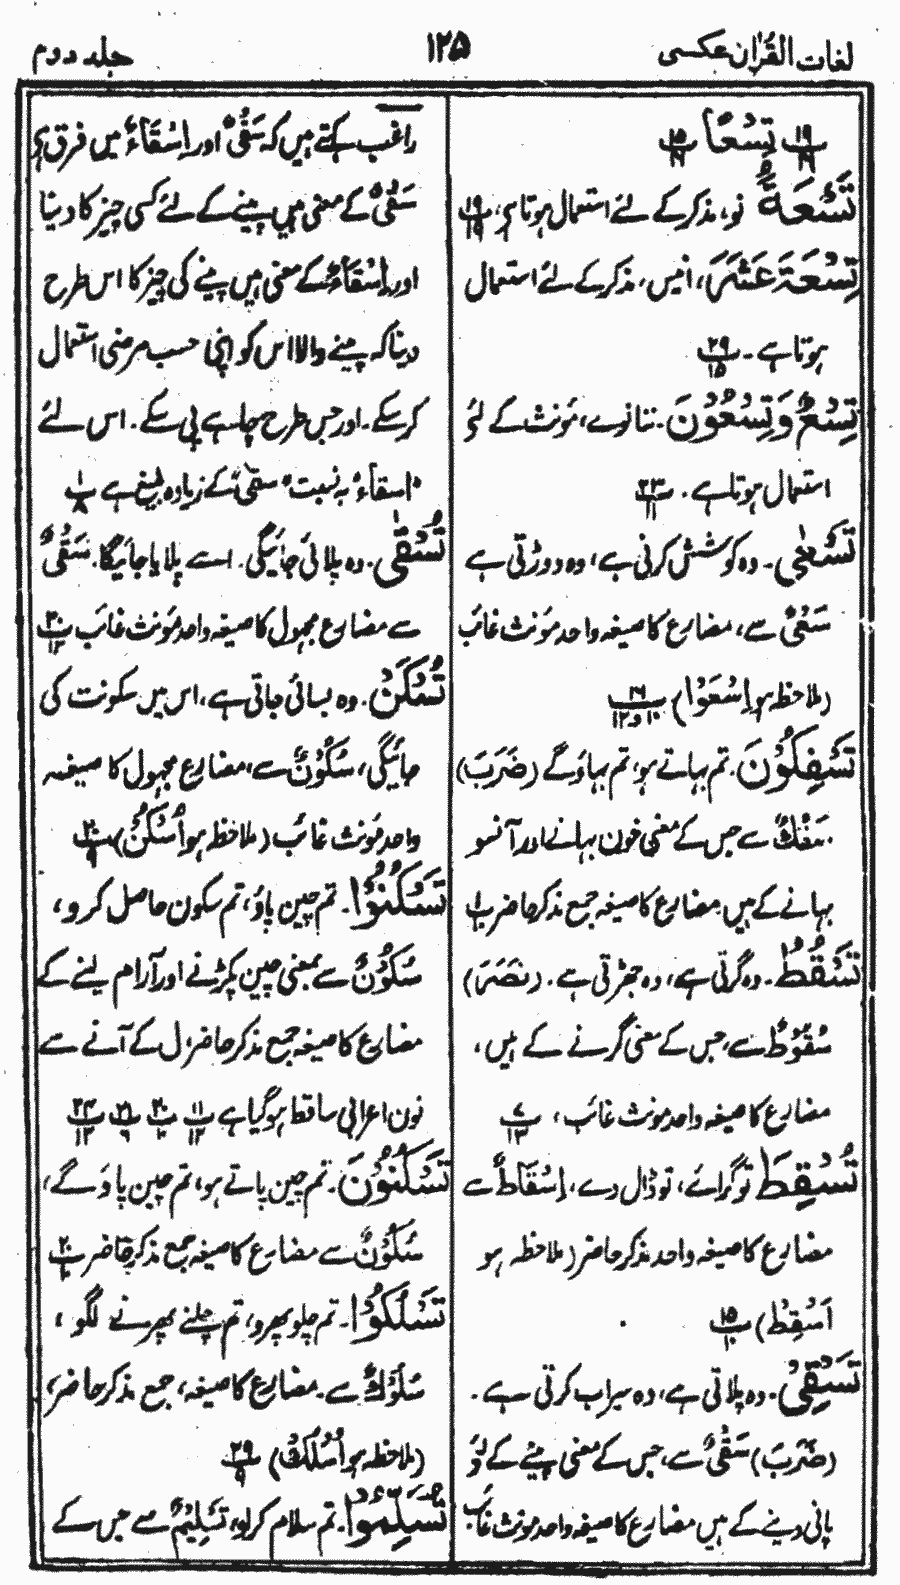 لغات القرآن عکسی ۱۲۵ جلد دوم
تِسْعًا پ ۱۵
تِسْعَۃَ نو، مذکر کے لئے استعمال ہوتا ہے،
تِسْعَۃَ عَشَرَ، انیس، مذکر کے لئے استعمال
ہوتا ہے۔ پ ۲۹ ۱۵
تِسْعٌ وَتِسْعُوْنَ۔ ننانوے، مؤنث کے لئے
استعمال ہوتا ہے۔ پ ۲۳ ۱۱
تَسْعٰی۔ وہ کوشش کرتی ہے، وہ دوڑتی ہے
سَعْیٌ سے، مضارع کا صیغہ واحد مؤنث غائب
(ملاحظہ ہو اِسْعَوْا) پ ۱۶ ۱۰ و ۱۲
تَسْفِکُوْنَ۔ تم بہاتے ہو، تم بہاؤ گے (ضَرَبَ)
سَفْکٌ سے جس کے معنی خون بہانے اور آنسو
بہانے کے ہیں مضارع کا صیغہ جمع مذکر حاضر پ ۱
تَسْقُطُ۔ وہ گرتی ہے، وہ جھڑتی ہے۔ (نَصَرَ)
سُقُوْطٌ سے، جس کے معنی گرنے کے ہیں،
مضارع کا صیغہ واحد مؤنث غائب، پ ۷ ۱۳
تُسْقِطَ تو گرائے، تو ڈال دے، اِسْقَاطٌ سے
مضارع کا صیغہ واحد مذکر حاضر (ملاحظہ ہو
اَسْقِطْ) پ ۱۵ ۱۰
تَسْقِیْ۔ وہ پلاتی ہے، وہ سیراب کرتی ہے۔
(ضَرَبَ) سَقْیٌ سے، جس کے معنی پینے کے لئے
پانی دینے کے ہیں مضارع کا صیغہ واحد مؤنث غائب
راغب کہتے ہیں کہ سَقْیٌ اور اِسْقَاءٌ میں فرق ہے
سَقْیٌ کے معنی ہیں پینے کے لئے کسی چیز کا دینا
اور اِسْقَاءٌ کے معنی ہیں پینے کی چیز کا اس طرح
دینا کہ پینے والا اس کو اپنی حسب مرضی استعمال
کر سکے۔ اور جس طرح چاہے پی سکے۔ اس لئے
"اسقاء" بہ نسبت "سقی" کے زیادہ بلیغ ہے پ ۱ ۸
تُسْقٰی۔ وہ پلائی جائیگی۔ اسے پلایا جائیگا۔ سَقْیٌ
سے مضارع مجہول کا صیغہ واحد مؤنث غائب پ ۳۰ ۱۳
تُسْکَنْ۔ وہ بسائی جاتی ہے، اس میں سکونت کی
جائیگی، سُکُوْنٌ سے، مضارع مجہول کا صیغہ
واحد مؤنث غائب (ملاحظہ ہو اُسْکُنْ) پ ۲۰ ۹
تَسْکُنُوْا۔ تم چین پاؤ، تم سکون حاصل کرو،
سُکُوْنٌ سے بمعنی چین پکڑنے اور آرام لینے کے
مضارع کا صیغہ جمع مذکر حاضر، ل کے آنے سے
نون اعرابی ساقط ہو گیا ہے پ ۱۱ ۱۲ پ ۲۰ پ ۲۱ ۶ پ ۲۴ ۱۲
تَسْکُنُوْنَ۔ تم چین پاتے ہو، تم چین پاؤ گے،
سُکُوْنٌ سے مضارع کا صیغہ جمع مذکر حاضر پ ۲۰
تَسْلُکُوْا۔ تم چلو پھرو، تم چلنے پھرنے لگو،
سُلُوْکٌ سے۔ مضارع کا صیغہ، جمع مذکر حاضر،
(ملاحظہ ہو اُسْلُکْ) پ ۲۹ ۹
تُسَلِّمُوْا۔ تم سلام کر لو، تَسْلِیْمٌ سے جس کے